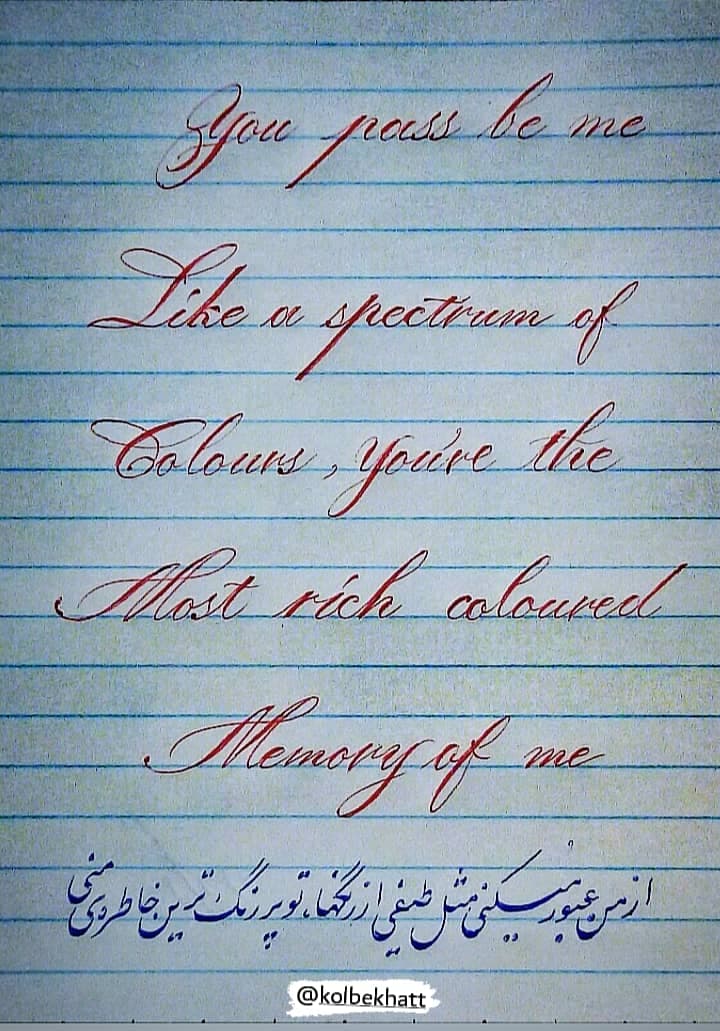 You pass be me
Like a spectrum of
Colours, You're the
Most rich coloured
Memory of me
از من عبور میکنی مثل طیفی از رنگها، تو پررنگ ترین خاطره‌ی منی
@kolbekhatt